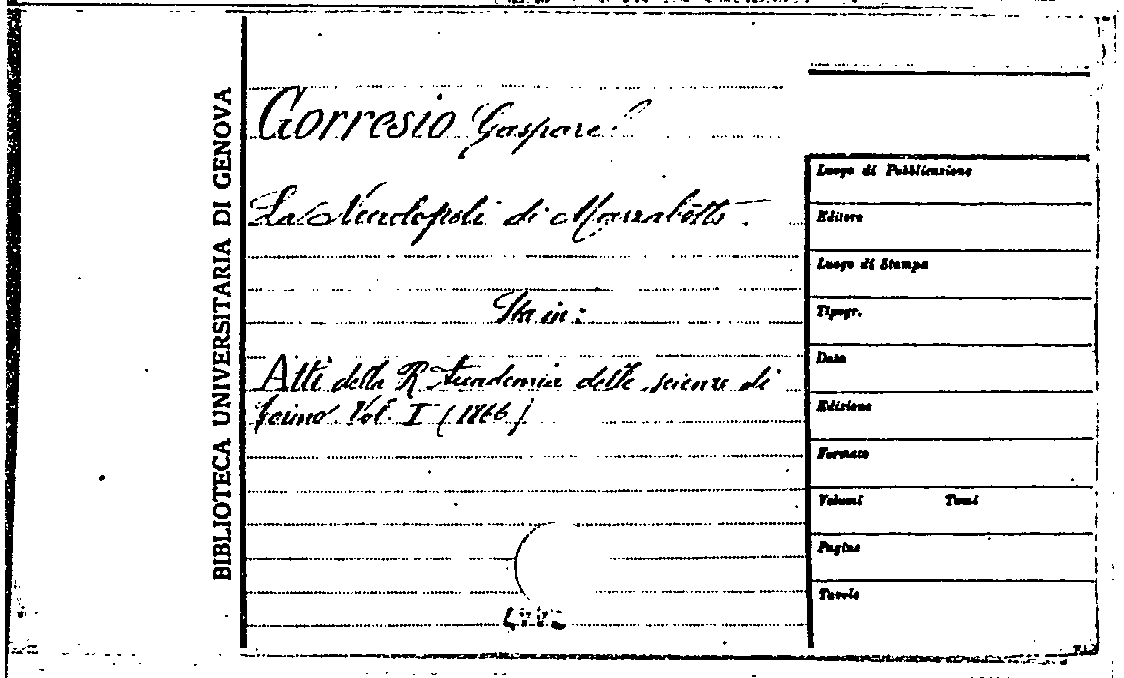 BIBLIOTECA UNIVERSITARIA DI GENOVA
Gorresio Gaspare
La Necropoli di Marzabotto.
Sta in:
Atti della R. Accademia delle scienze di
Torino. Vol. I (1866)
Luogo di Pubblicazione
Editore
Luogo di Stampa
Tipogr.
Data
Edizione
Formato
Volumi Tomi
Pagine
Tavole